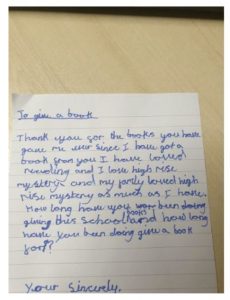 To give a book
Thank you for the books you have
gave me ever since I have got a
book from you I have loved
reveiwing and I love high rise
mystery and my family loved high
rise mystery as much as I have.
How long have you been doing
giving this school books and how long
have you been doing give a book
for??
Your sincerely,